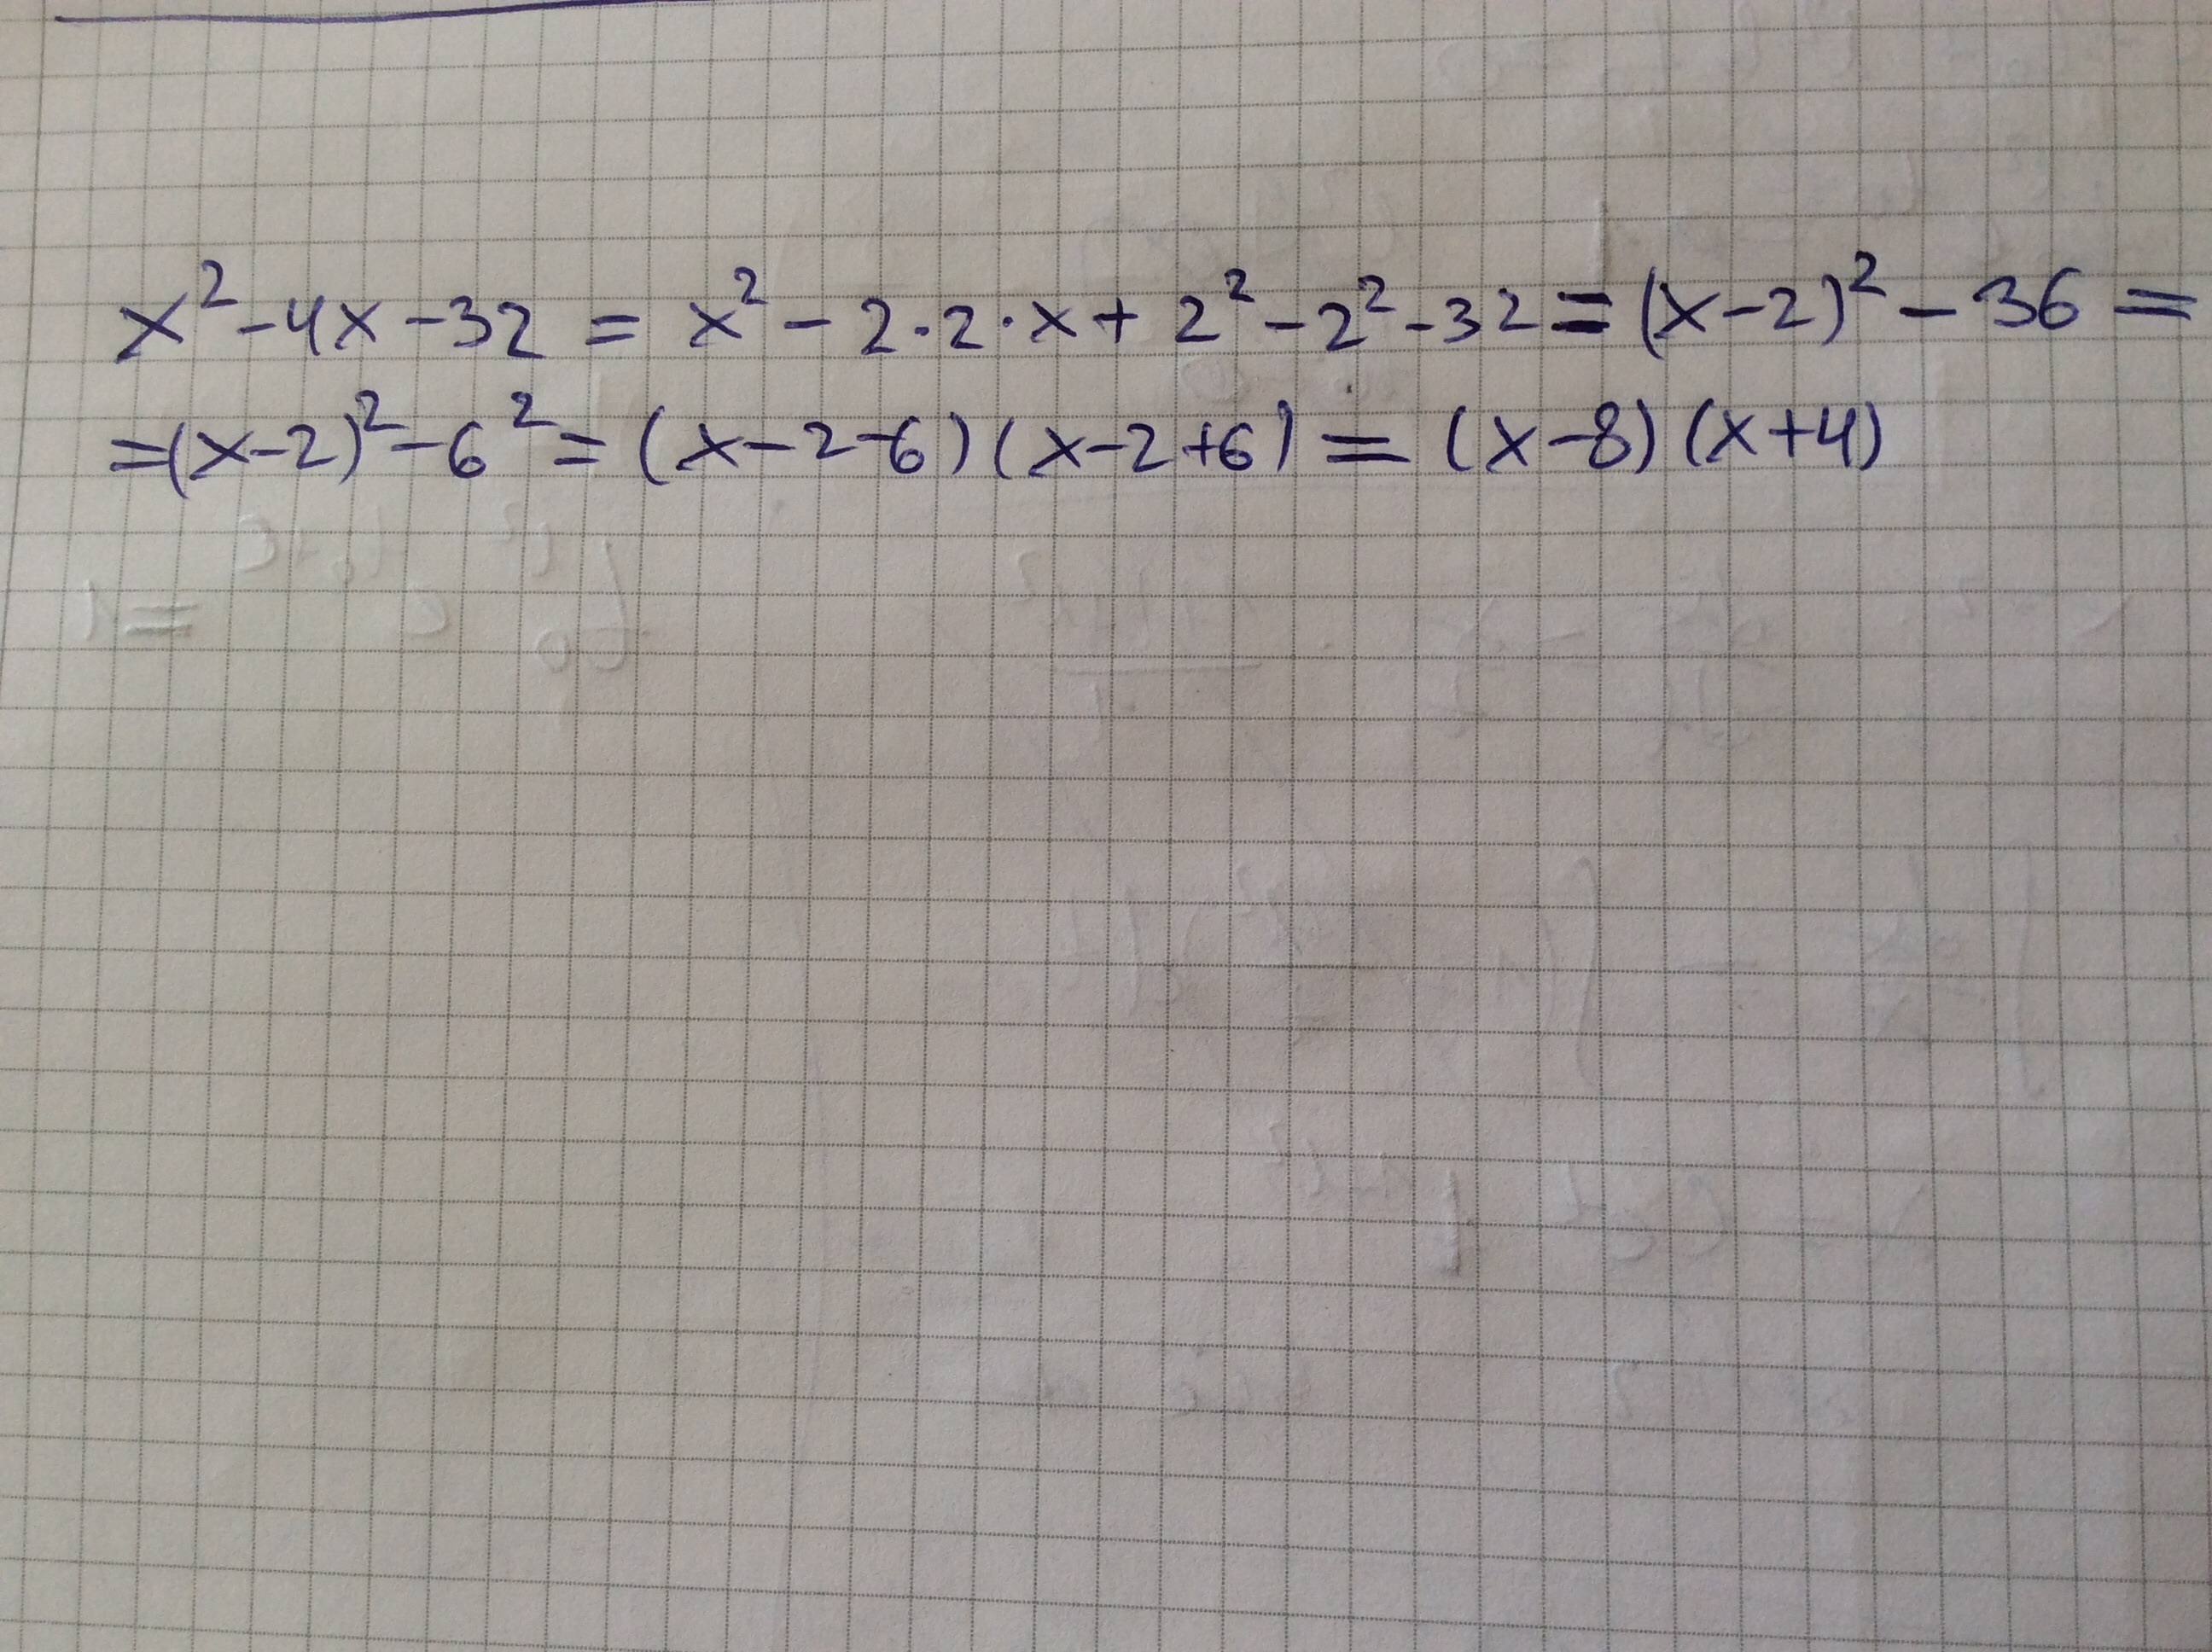 x² - 4x - 32 = x² - 2·2·x + 2² - 2² - 32 = (x-2)² - 36 =
= (x-2)² - 6² = (x-2-6)(x-2+6) = (x-8)(x+4)